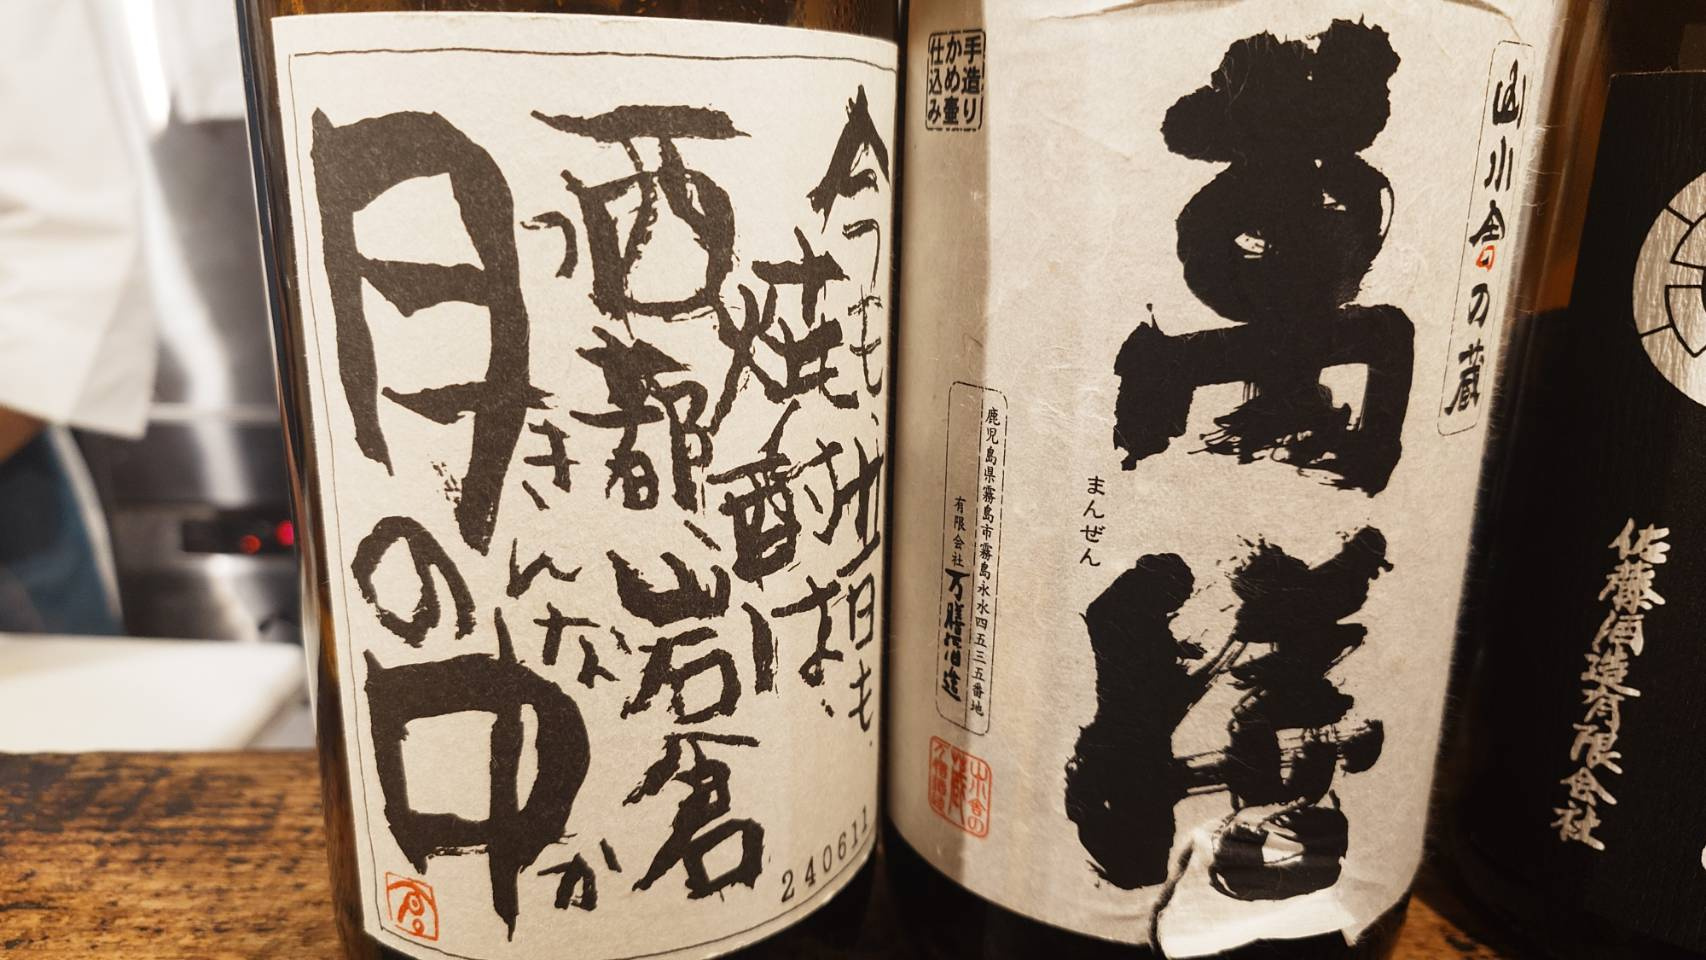 今つも、壮日も、
焼酎は、
西都、岩倉
つきんなか
月の中
240611
手造り
かめ壷
仕込み
山小舎の蔵
萬膳
まんぜん
鹿児島県霧島市霧島永水四五三五番地
有限会社 万膳酒造
佐藤酒造有限会社